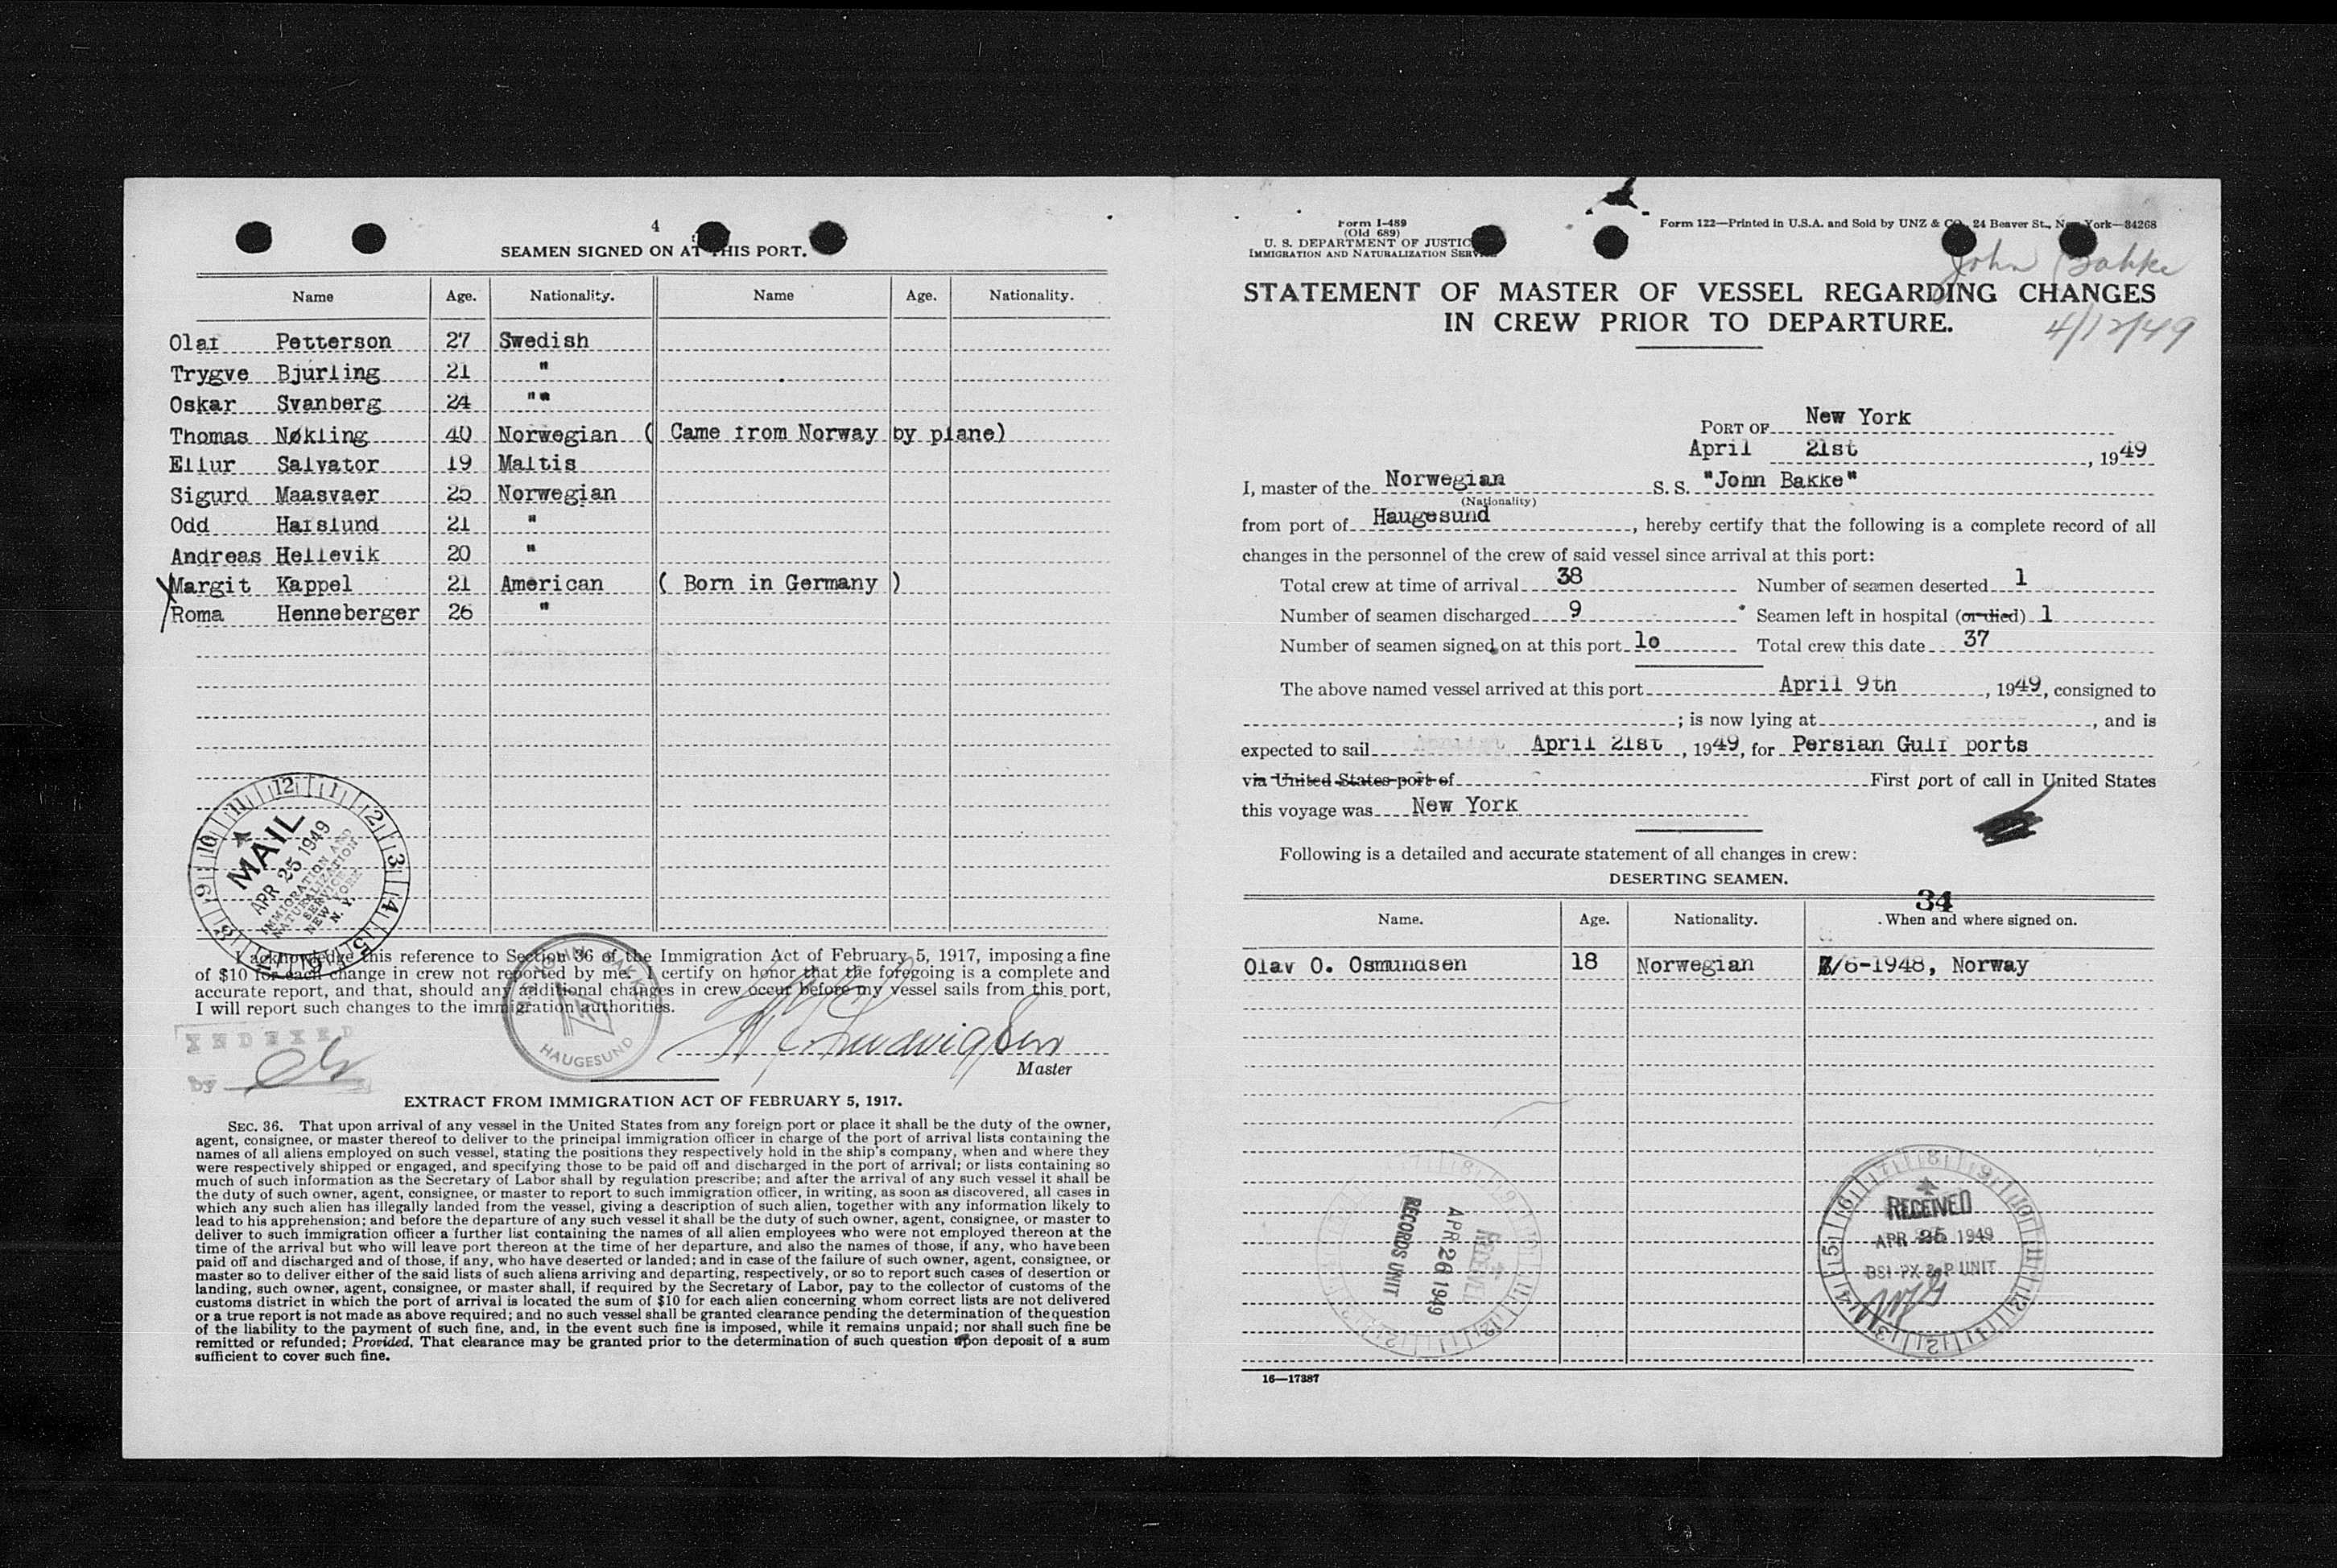 4
SEAMEN SIGNED ON AT THIS PORT.
Name Age. Nationality. Name Age. Nationality.
Olaf Petterson 27 Swedish
Trygve Bjurling 21 "
Oskar Svanberg 24 ""
Thomas Nøkling 40 Norwegian ( Came from Norway by plane)
Ellur Salvator 19 Maltis
Sigurd Maasvaer 25 Norwegian
Odd Harslund 21 "
Andreas Hellevik 20 "
Margit Kappel 21 American ( Born in Germany )
Roma Henneberger 26 "
MAIL
APR 25 1949
IMMIGRATION AND
NATURALIZATION
SERVICE
NEW YORK
N. Y.
I acknowledge this reference to Section 36 of the Immigration Act of February 5, 1917, imposing a fine
of $10 for each change in crew not reported by me. I certify on honor that the foregoing is a complete and
accurate report, and that, should any additional changes in crew occur before my vessel sails from this port,
I will report such changes to the immigration authorities.
INDEXED
by
HAUGESUND
Ludwigsen
Master
EXTRACT FROM IMMIGRATION ACT OF FEBRUARY 5, 1917.
SEC. 36. That upon arrival of any vessel in the United States from any foreign port or place it shall be the duty of the owner,
agent, consignee, or master thereof to deliver to the principal immigration officer in charge of the port of arrival lists containing the
names of all aliens employed on such vessel, stating the positions they respectively hold in the ship's company, when and where they
were respectively shipped or engaged, and specifying those to be paid off and discharged in the port of arrival; or lists containing so
much of such information as the Secretary of Labor shall by regulation prescribe; and after the arrival of any such vessel it shall be
the duty of such owner, agent, consignee, or master to report to such immigration officer, in writing, as soon as discovered, all cases in
which any such alien has illegally landed from the vessel, giving a description of such alien, together with any information likely to
lead to his apprehension; and before the departure of any such vessel it shall be the duty of such owner, agent, consignee, or master to
deliver to such immigration officer a further list containing the names of all alien employees who were not employed thereon at the
time of the arrival but who will leave port thereon at the time of her departure, and also the names of those, if any, who have been
paid off and discharged and of those, if any, who have deserted or landed; and in case of the failure of such owner, agent, consignee, or
master so to deliver either of the said lists of such aliens arriving and departing, respectively, or so to report such cases of desertion or
landing, such owner, agent, consignee, or master shall, if required by the Secretary of Labor, pay to the collector of customs of the
customs district in which the port of arrival is located the sum of $10 for each alien concerning whom correct lists are not delivered
or a true report is not made as above required; and no such vessel shall be granted clearance pending the determination of the question
of the liability to the payment of such fine, and, in the event such fine is imposed, while it remains unpaid; nor shall such fine be
remitted or refunded; Provided, That clearance may be granted prior to the determination of such question upon deposit of a sum
sufficient to cover such fine.
Form I-489
(Old 689)
U. S. DEPARTMENT OF JUSTICE
IMMIGRATION AND NATURALIZATION SERVICE
Form 122—Printed in U.S.A. and Sold by UNZ & CO., 24 Beaver St., New York—84268
John Bakke
4/12/49
STATEMENT OF MASTER OF VESSEL REGARDING CHANGES
IN CREW PRIOR TO DEPARTURE.
PORT OF New York
April 21st, 1949
I, master of the Norwegian S. S. "John Bakke"
(Nationality)
from port of Haugesund, hereby certify that the following is a complete record of all
changes in the personnel of the crew of said vessel since arrival at this port:
Total crew at time of arrival 38 Number of seamen deserted 1
Number of seamen discharged 9 Seamen left in hospital (or died) 1
Number of seamen signed on at this port 10 Total crew this date 37
The above named vessel arrived at this port April 9th, 1949, consigned to
; is now lying at , and is
expected to sail April 21st, 1949, for Persian Gulf ports
via United States port of First port of call in United States
this voyage was New York
Following is a detailed and accurate statement of all changes in crew:
DESERTING SEAMEN.
34
Name. Age. Nationality. When and where signed on.
Olav O. Osmundsen 18 Norwegian 7/6-1948, Norway
RECEIVED
APR 26 1949
RECORDS UNIT
RECEIVED
APR 25 1949
BSI-PX & P UNIT
16—17387